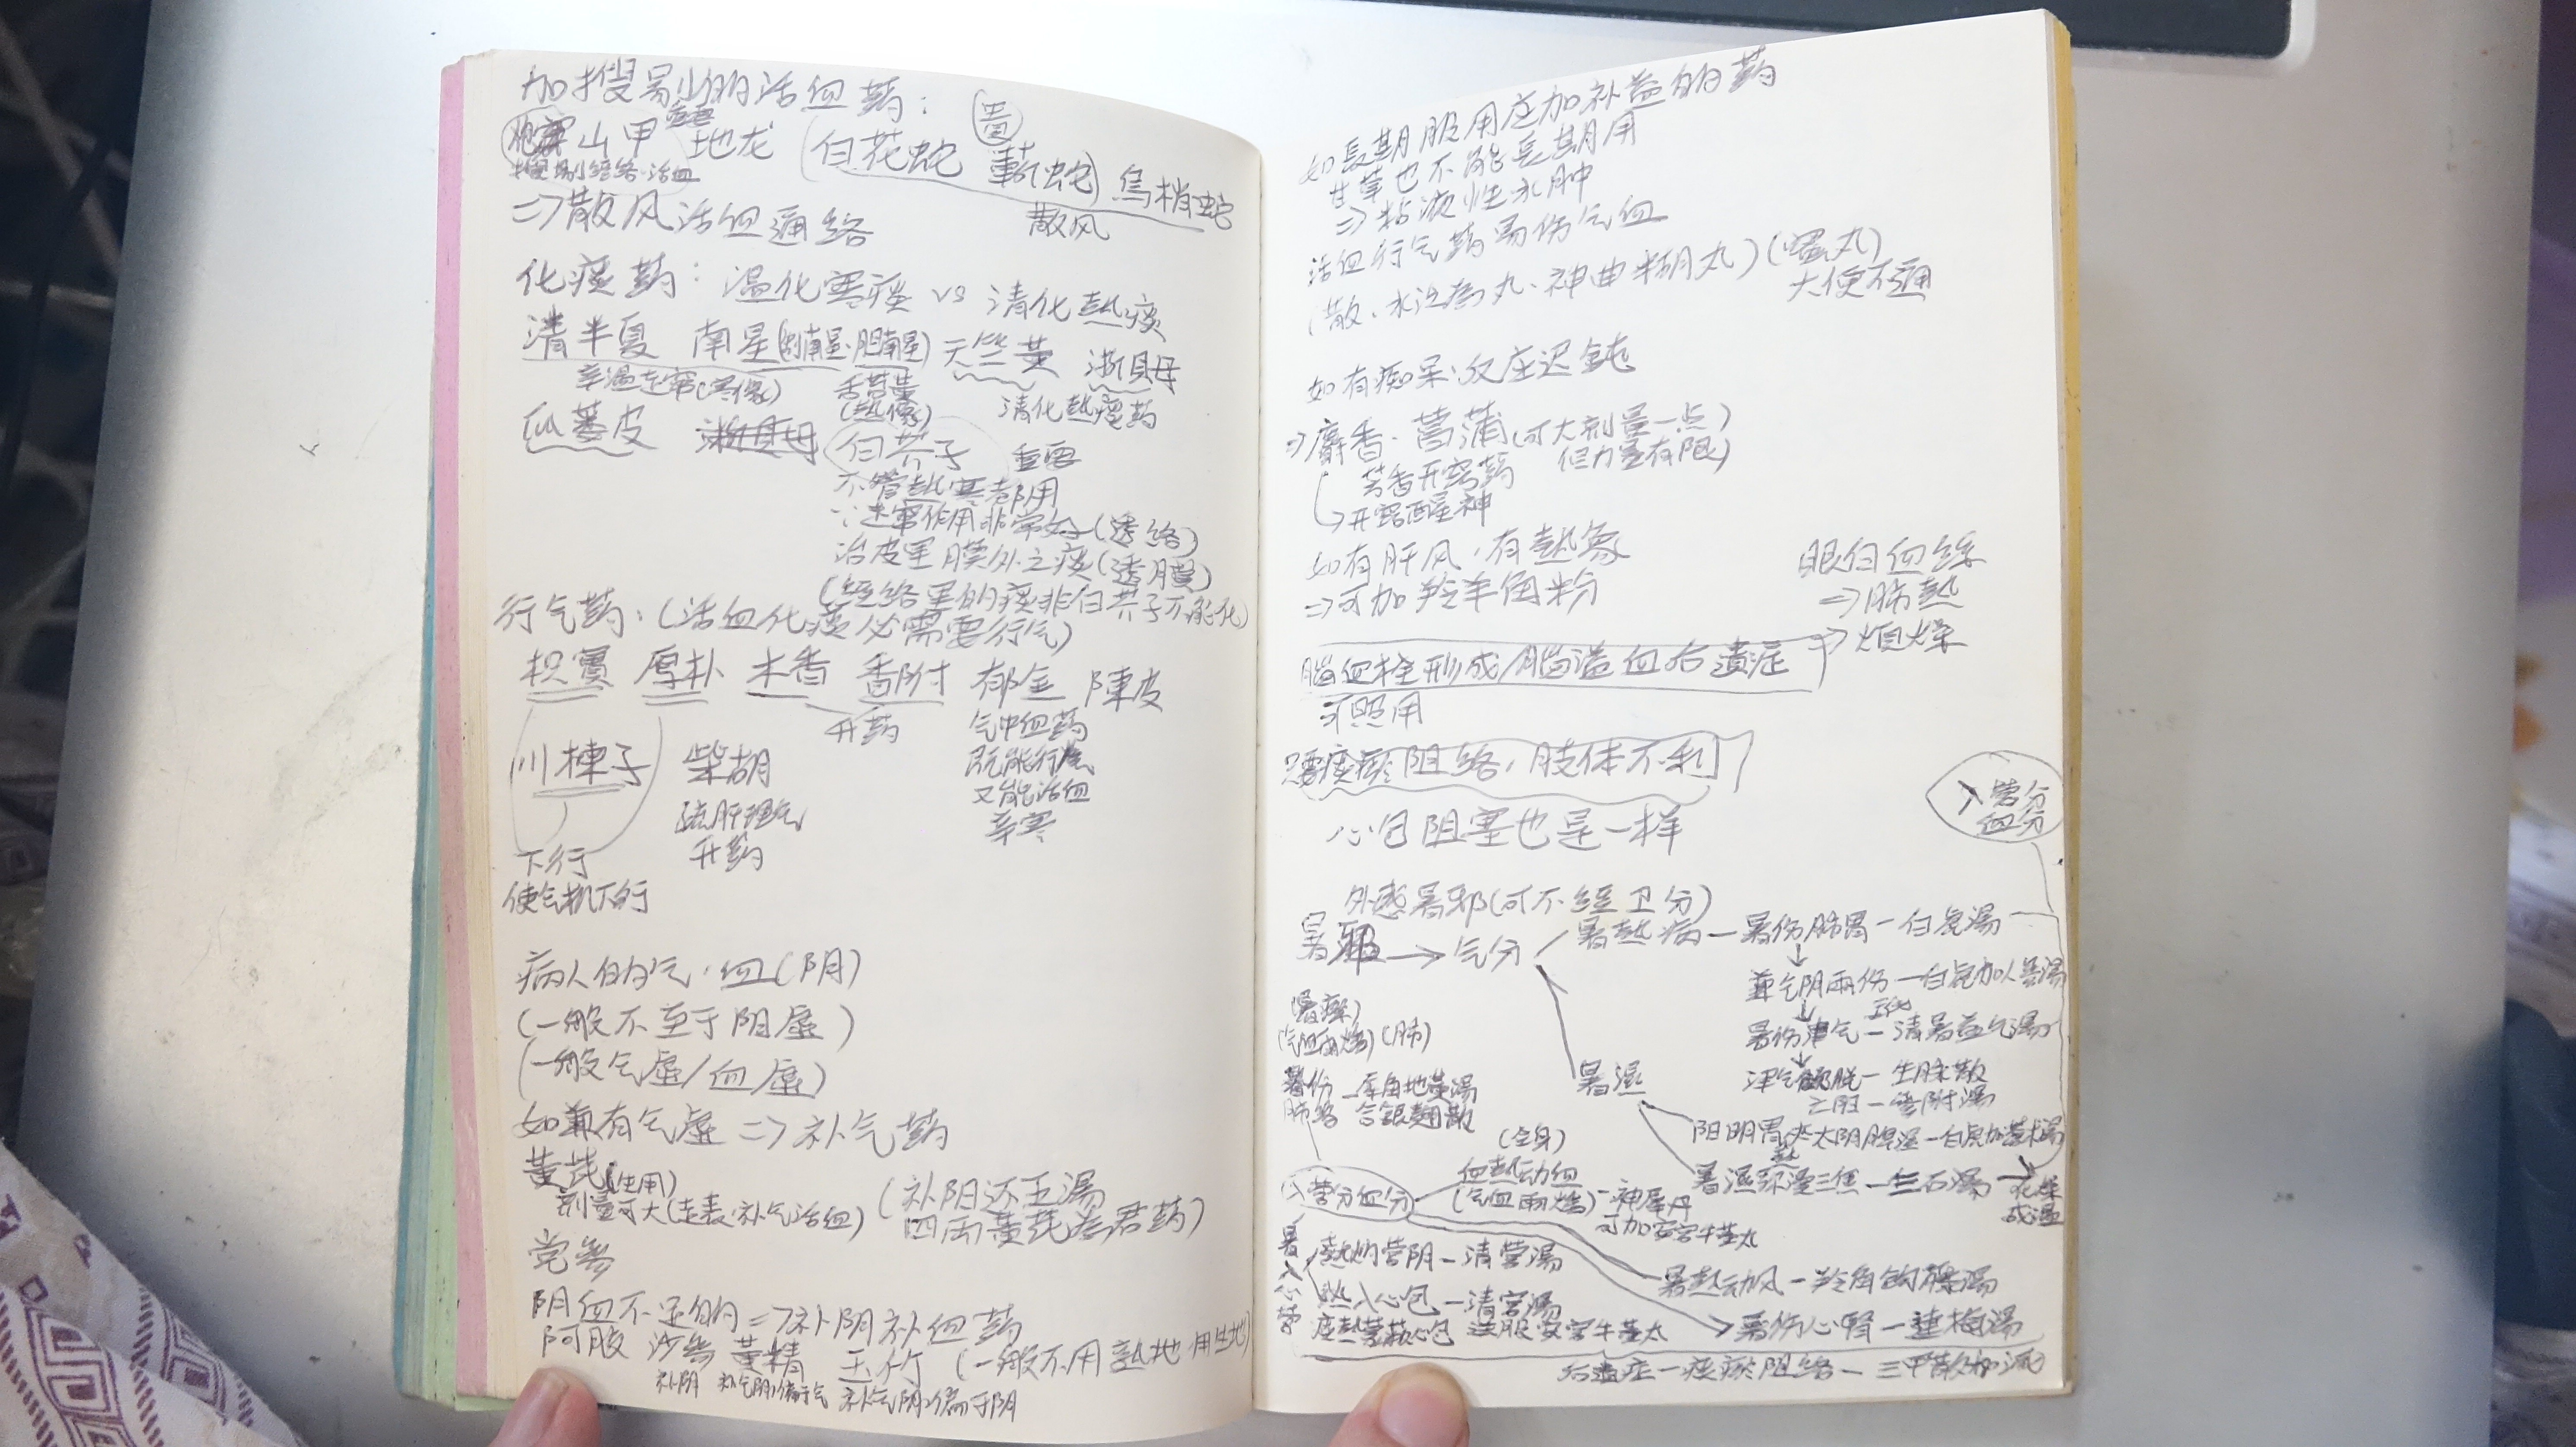 加搜剔的活血药：
山甲 地龙 (白花蛇 蕲蛇) 乌梢蛇
搜剔经络·活血
散风
⇒散风活血通络
化痰药：温化寒痰 vs 清化熱痰
清半夏 南星(制南星·胆南星) 天竺黄 浙貝母
辛温走窜(寒像)
舌苔黄
(熱像)
清化熱痰药
瓜蒌皮 白芥子 重要
不管熱寒都用
∵走窜作用非常好(透络)
治皮里膜外之痰(透膜)
(经络里的痰非白芥子不能化)
行气药：(活血化痰必需要行气)
枳實 厚朴 木香 香附 郁金 陳皮
升药
气中血药
既能行气
又能活血
辛寒
川楝子 柴胡
疏肝理气
升药
下行
使气机下行
病人的气·血(阴)
(一般不至于阴虚)
(一般气虚/血虚)
如兼有气虚⇒补气药
黃芪(生用)
剂量可大(走表·补气活血)
(补阳还五湯
四両黃芪为君药)
党参
阴血不足的⇒补阴补血药
阿胶 沙参 黄精 玉竹 (一般不用熟地·用生地)
补阴 补气阴·偏于气 补气阴·偏于阴
如長期服用应加补益的药
甘草也不能長期用
⇒粘液性水肿
活血行气药易伤气血
(散、水泛為丸、神曲糊丸)(蜜丸)
大便不通
如有痴呆·反应迟鈍
⇒麝香·菖蒲(可大剂量一点)
但力量有限)
芳香开窍药
开窍醒神
如有肝风·有熱象
⇒可加羚羊角粉
眼白血丝
⇒肺熱
→煩燥
脑血栓形成/脑溢血后遺症
可照用
只要痰瘀阻络，肢体不利
心包阻塞也是一样
入营分
血分
外感暑邪(可不经卫分)
暑邪→气分
暑熱病—暑伤肺胃—白虎湯
兼气阴両伤—白虎加人参湯
暑伤津气—清暑益气湯
津气欲脱—生脉散
亡阳—参附湯
暑湿
阳明胃熱太阴脾湿—白虎加蒼术湯
暑湿弥漫三焦—三石湯
化燥
成温
(暑瘵)
(气血両燔)(肺)
暑伤
肺络—犀角地黃湯
合銀翹散
入营分血分
(全身)
血熱动血
(气血両燔)—神犀丹
可加安宫牛黃丸
暑入心营
熱灼营阴—清营湯
熱入心包—清宫湯
痰熱蒙蔽心包 送服安宫牛黃丸
暑熱动风—羚角鈎藤湯
暑伤心腎—連梅湯
后遺症—痰瘀阻络—三甲散加减